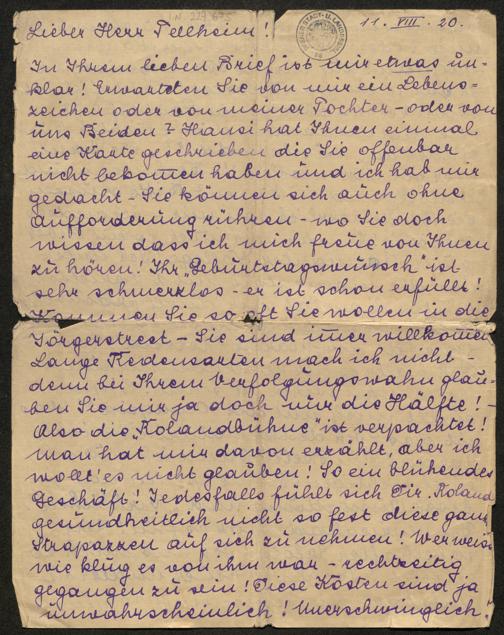 11. VIII. 20.
Lieber Herr Tellheim!
In Ihrem lieben Brief ist mir etwas un-
klar! Erwarteten Sie von mir ein Lebens-
zeichen oder von meiner Tochter – oder von
uns Beiden? Hansi hat Ihnen einmal
eine Karte geschrieben die Sie offenbar
nicht bekom̅en haben und ich hab mir
gedacht – Sie können sich auch ohne
Aufforderung rühren – wo Sie doch
wissen dass ich mich freue von Ihnen
zu hören! Ihr „Geburtstagswunsch" ist
sehr schmerzlos – er ist schon erfüllt!
Kommen Sie so oft Sie wollen in die
Jörgerstrest – Sie sind im̅er willkom̅en
Lange Redensarten mach ich nicht –
denn bei Ihrem Verfolgungswahn glau-
ben Sie mir ja doch nur die Hälfte! –
Also die „Rolandbühne" ist verpachtet!
Man hat mir davon erzählt, aber ich
wollt' es nicht glauben! So ein blühendes
Geschäft! Jedesfalls fühlt sich Dir. Roland
gesundheitlich nicht so fest diese ganz
Strapazzen auf sich zu nehmen! Wer weiss
wie klug es von ihm war – rechtzeitig
gegangen zu sein! Diese Kosten sind ja
unwahrscheinlich! Unerschwinglich!